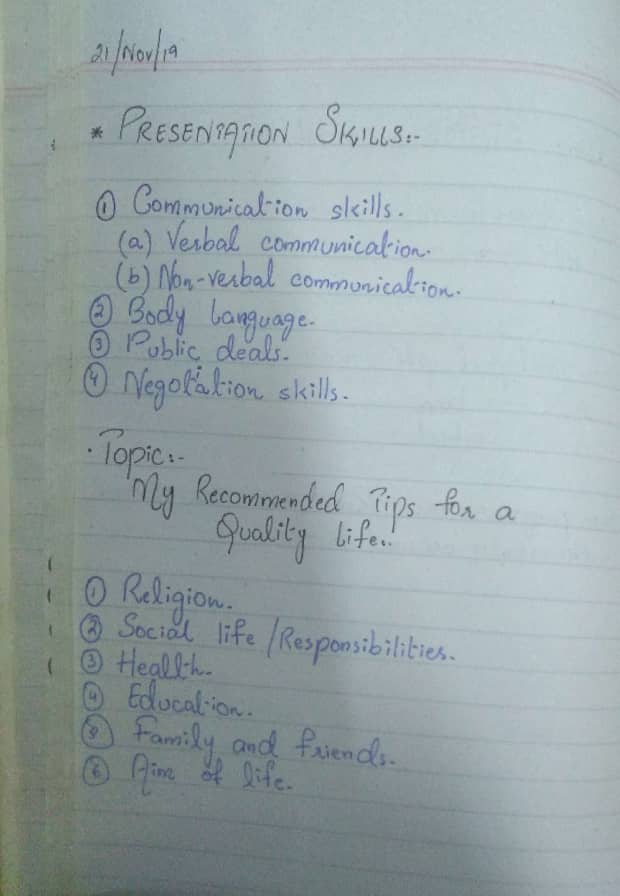 21/Nov/19
* PRESENTATION SKILLS:-
① Communication skills.
(a) Verbal communication.
(b) Non-verbal communication.
② Body language.
③ Public deals.
④ Negotiation skills.
· Topic:-
My Recommended Tips for a
Quality life..
① Religion.
② Social life / Responsibilities.
③ Health.
④ Education.
⑤ Family and friends.
⑥ Aim of life.